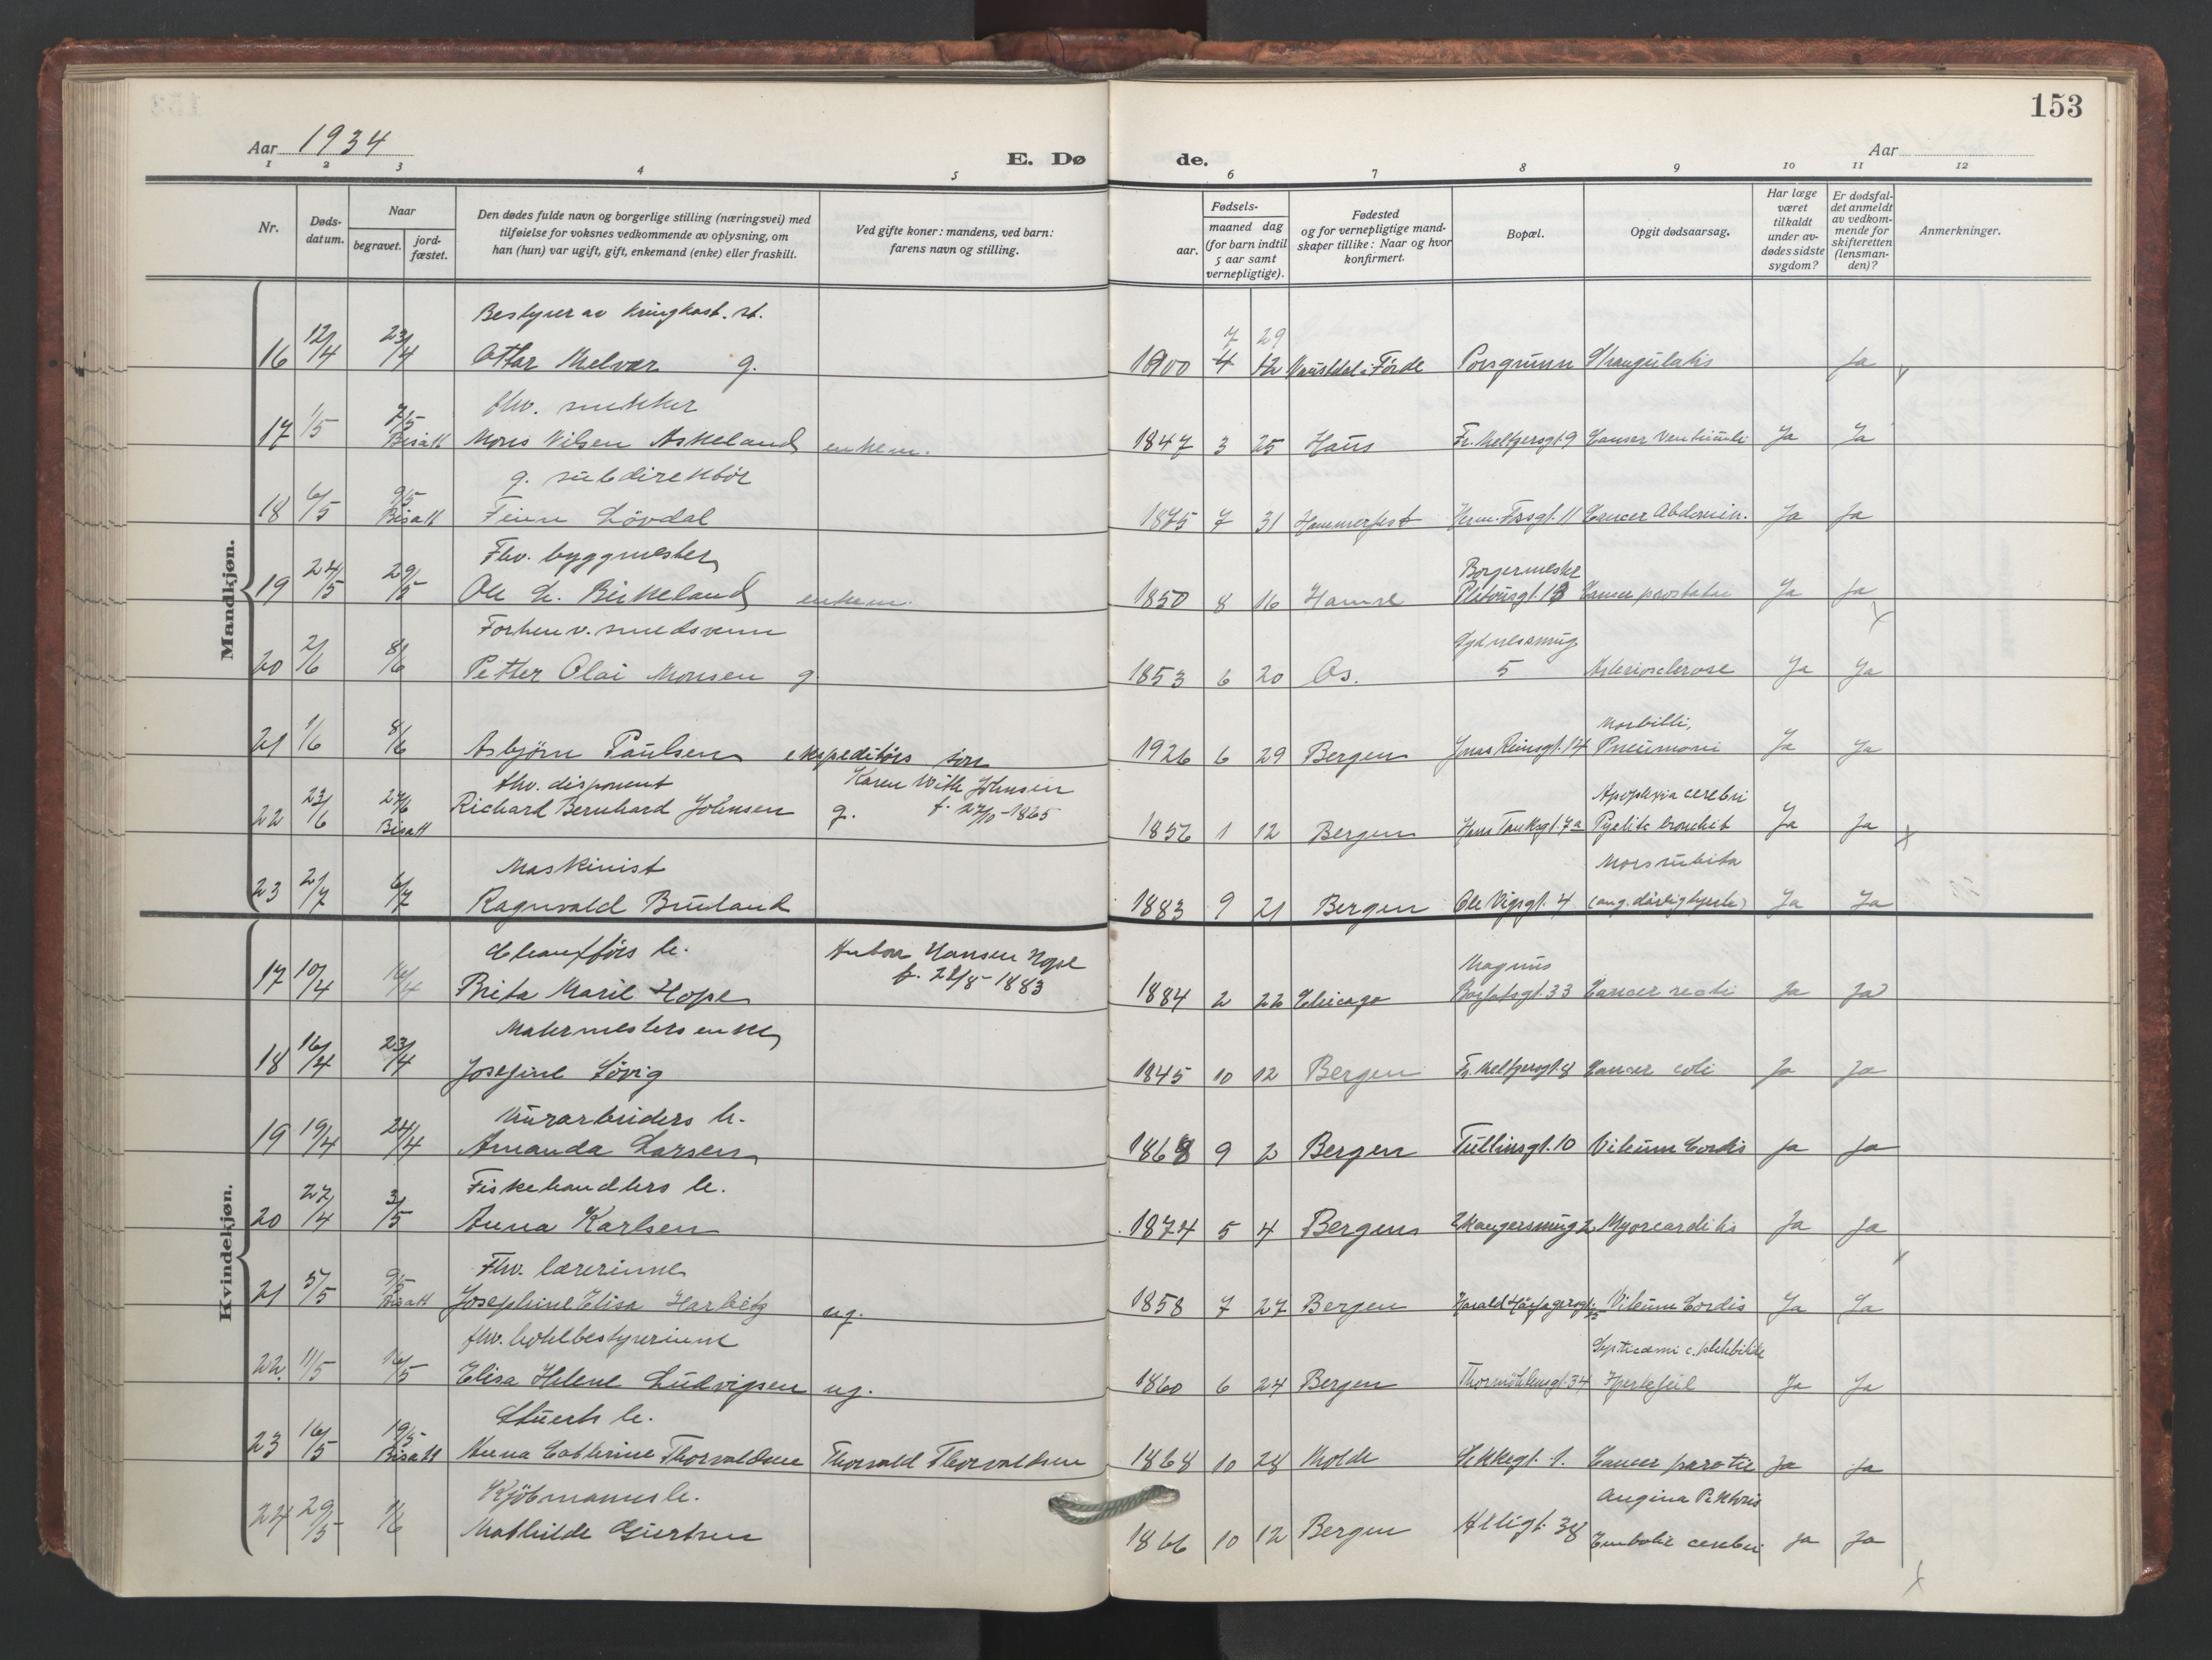 153
Aar 1934
E. Dø
de.
Aar
1 2 3 4 5 6 7 8 9 10 11 12
Nr.
Døds-
datum.
Naar
begravet.
jord-
fæstet.
Den dødes fulde navn og borgerlige stilling (næringsvei) med
tilføielse for voksnes vedkommende av oplysning, om
han (hun) var ugift, gift, enkemand (enke) eller fraskilt.
Ved gifte koner: mandens, ved barn:
farens navn og stilling.
Fødsels-
aar.
maaned dag
(for barn indtil
5 aar samt
vernepligtige).
Fødested
og for vernepligtige mand-
skaper tillike: Naar og hvor
konfirmert.
Bopæl.
Opgit dødsaarsag.
Har læge
været
tilkaldt
under av-
dødes sidste
sygdom?
Er dødsfal-
det anmeldt
av vedkom-
mende for
skifteretten
(lensman-
den)?
Anmerkninger.
Mandkjøn.
Bestyrer av kringkast. st.
7 29
16 12/4 23/4 Ottar Melvær g. 1900 4 12 Naustdal i Førde Porsgrunn Strangulatis Ja
fhv. snekker
17 1/5 7/5 Bisatt Mons Nilsen Askeland enkem. 1847 3 25 Haus Fr. Meltzersgt. 9 Cancer Ventriculi Ja Ja
g. subdirektör
18 6/5 9/5 Bisatt Finn Lövdal 1875 7 31 Hammerfest Herm. Fossgt. 11 Cancer Abdomin. Ja Ja
Fhv. byggmester
Borgermester
19 24/5 29/5 Ole L. Birkeland enkem. 1850 8 16 Hamre Platousgt. 13 Cancer prostatae Ja Ja
Forhenv. smedsvenn
Sydnessmug
20 2/6 8/6 Petter Olai Monsen g. 1853 6 20 Os. 5 Arteriosclerose Ja Ja
Morbilli,
21 1/6 8/6 Asbjörn Paulsen ekspeditörs sön 1926 6 29 Bergen Jonas Reinsgt. 14 Pneumoni Ja Ja
fhv. disponent Karen With Johnsen
f. 27/10-1865
Apoplexia cerebri
22 23/6 27/6 Bisatt Richard Bernhard Johnsen g. 1856 1 12 Bergen Hans Tanksgt. 7a Pyelite bronchit Ja Ja
Maskinist
Mors subita
23 2/7 6/7 Ragnvald Bruland 1883 9 21 Bergen Ole Vigsgt. 4 (ang. dårlig hjerte) Ja Ja
Kvindekjøn.
Chauffförs h. Anton Hansen Hope
f. 28/8-1883
Magnus
17 10/4 16/4 Brita Marie Hope 1884 2 22 Chicago Barfotsgt. 33 Cancer recti Ja Ja
Malermesters enke
18 16/4 23/4 Josefine Lövig 1845 10 12 Bergen Fr. Meltzersgt. 8 Cancer coli Ja Ja
Murarbeiders h.
19 19/4 24/4 Amanda Larsen 1868 9 2 Bergen Tullinsgt. 10 Vitium Cordis Ja Ja
Fiskehandlers h.
20 27/4 3/5 Anna Karlsen 1874 5 4 Bergen Skangersmug 2 Myocarditis Ja Ja
Fhv. lærerinne
21 5/5 9/5 Bisatt Josephine Elisa Harbitz ug. 1858 7 27 Bergen Harald Hårfagersgt. Vitium Cordis Ja Ja
fhv. hotelbestyrerinne
Septicæmi c. phlebitide
22. 11/5 16/5 Elisa Helene Ludvigsen ug. 1860 6 24 Bergen Thormöhlensgt. 34 Hjertefeil Ja Ja
Stuerts h.
23 16/5 19/5 Bisatt Anna Cathrine Thorvaldsen Thorvald Thorvaldsen 1868 10 28 Molde Hekkegt. 1. Cancer parotis Ja Ja
Kjöbmanns h.
Angina Pektoris
24 29/5 1/6 Mathilde Giertsen 1866 10 12 Bergen Allégt. 38 Embolie cerebri Ja Ja